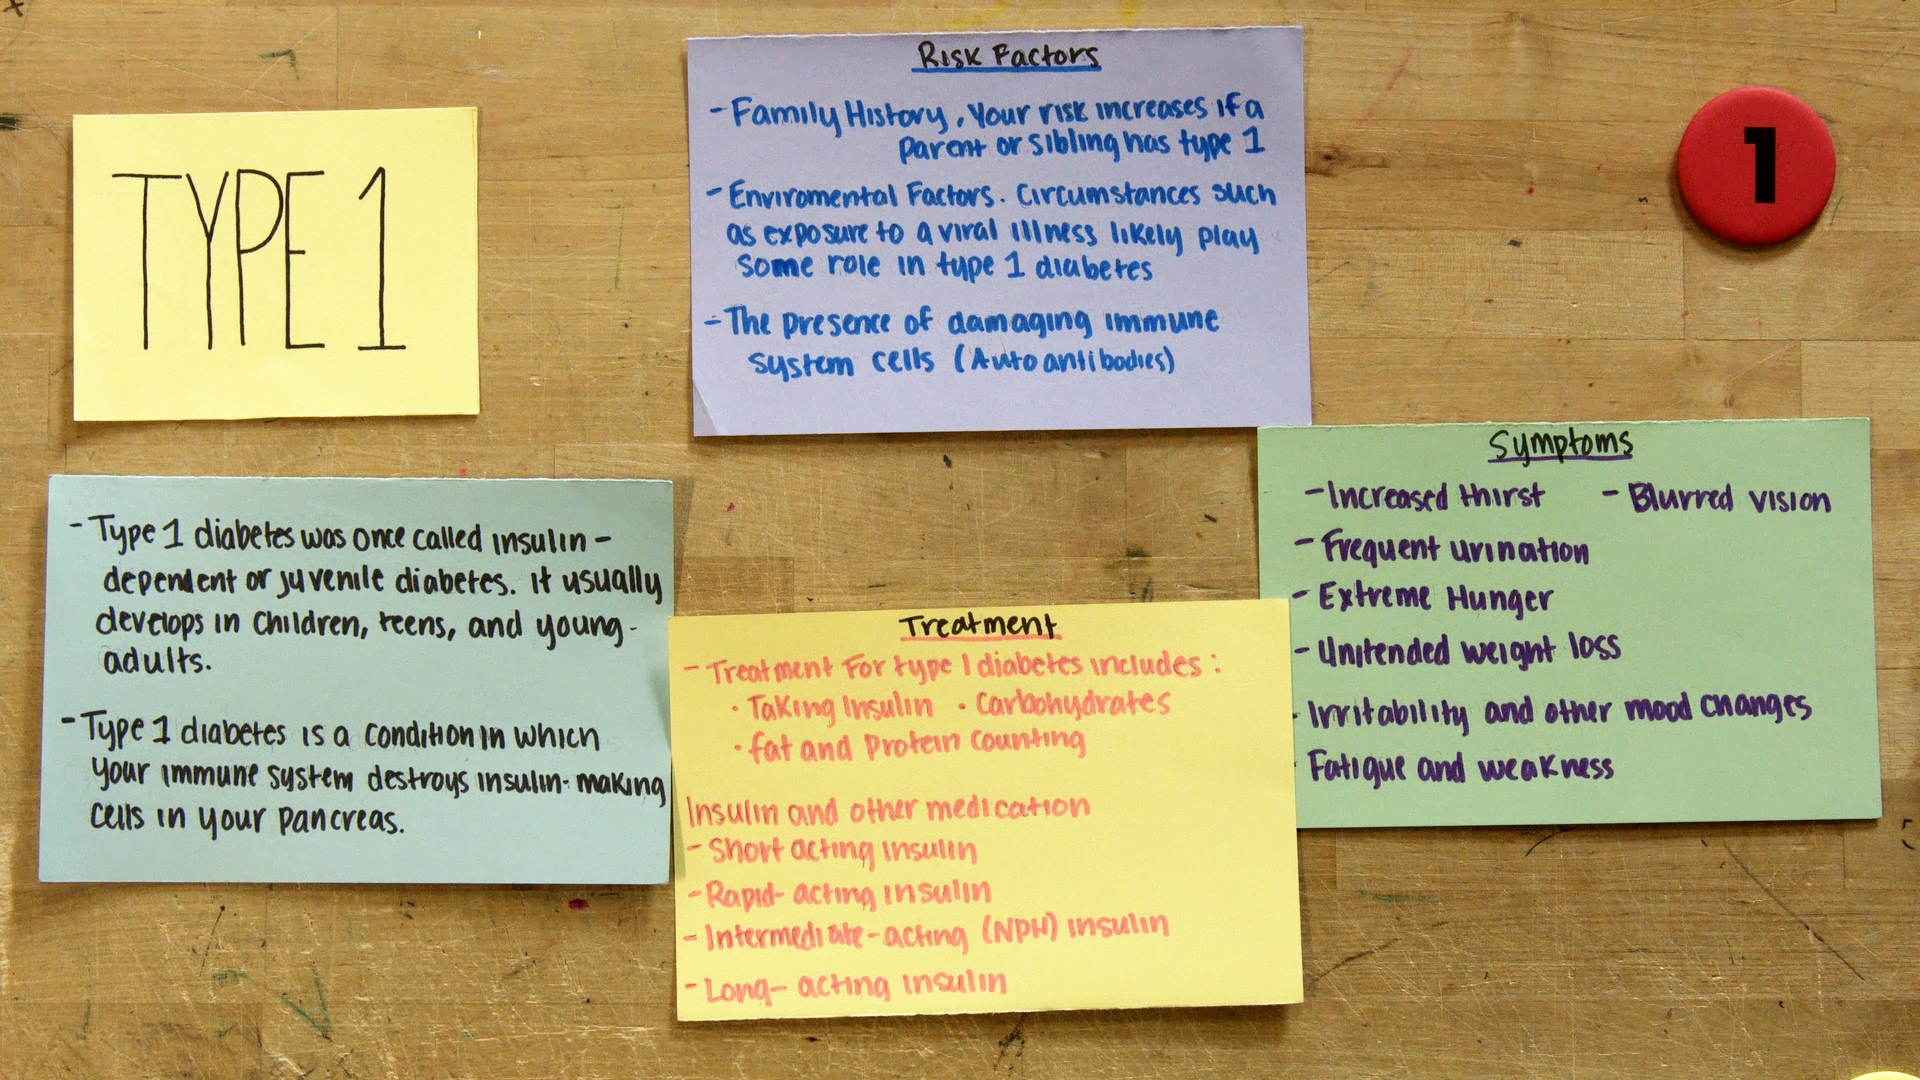 TYPE 1
Risk Factors
- Family History, Your risk increases if a
parent or sibling has type 1
- Enviromental Factors. Circumstances such
as exposure to a viral illness likely play
some role in type 1 diabetes
- The presence of damaging immune
system cells (Autoantibodies)
1
- Type 1 diabetes was once called insulin-
dependent or juvenile diabetes. it usually
develops in children, teens, and young-
adults.
- Type 1 diabetes is a condition in which
your immune system destroys insulin-making
cells in your pancreas.
Treatment
- Treatment for type 1 diabetes includes:
· Taking Insulin · Carbohydrates
· fat and protein counting
Insulin and other medication
- Short acting insulin
- Rapid-acting insulin
- Intermediate-acting (NPH) insulin
- Long-acting insulin
Symptoms
- Increased thirst - Blurred vision
- Frequent urination
- Extreme Hunger
- Unitended weight loss
- Irritability and other mood changes
Fatigue and weakness